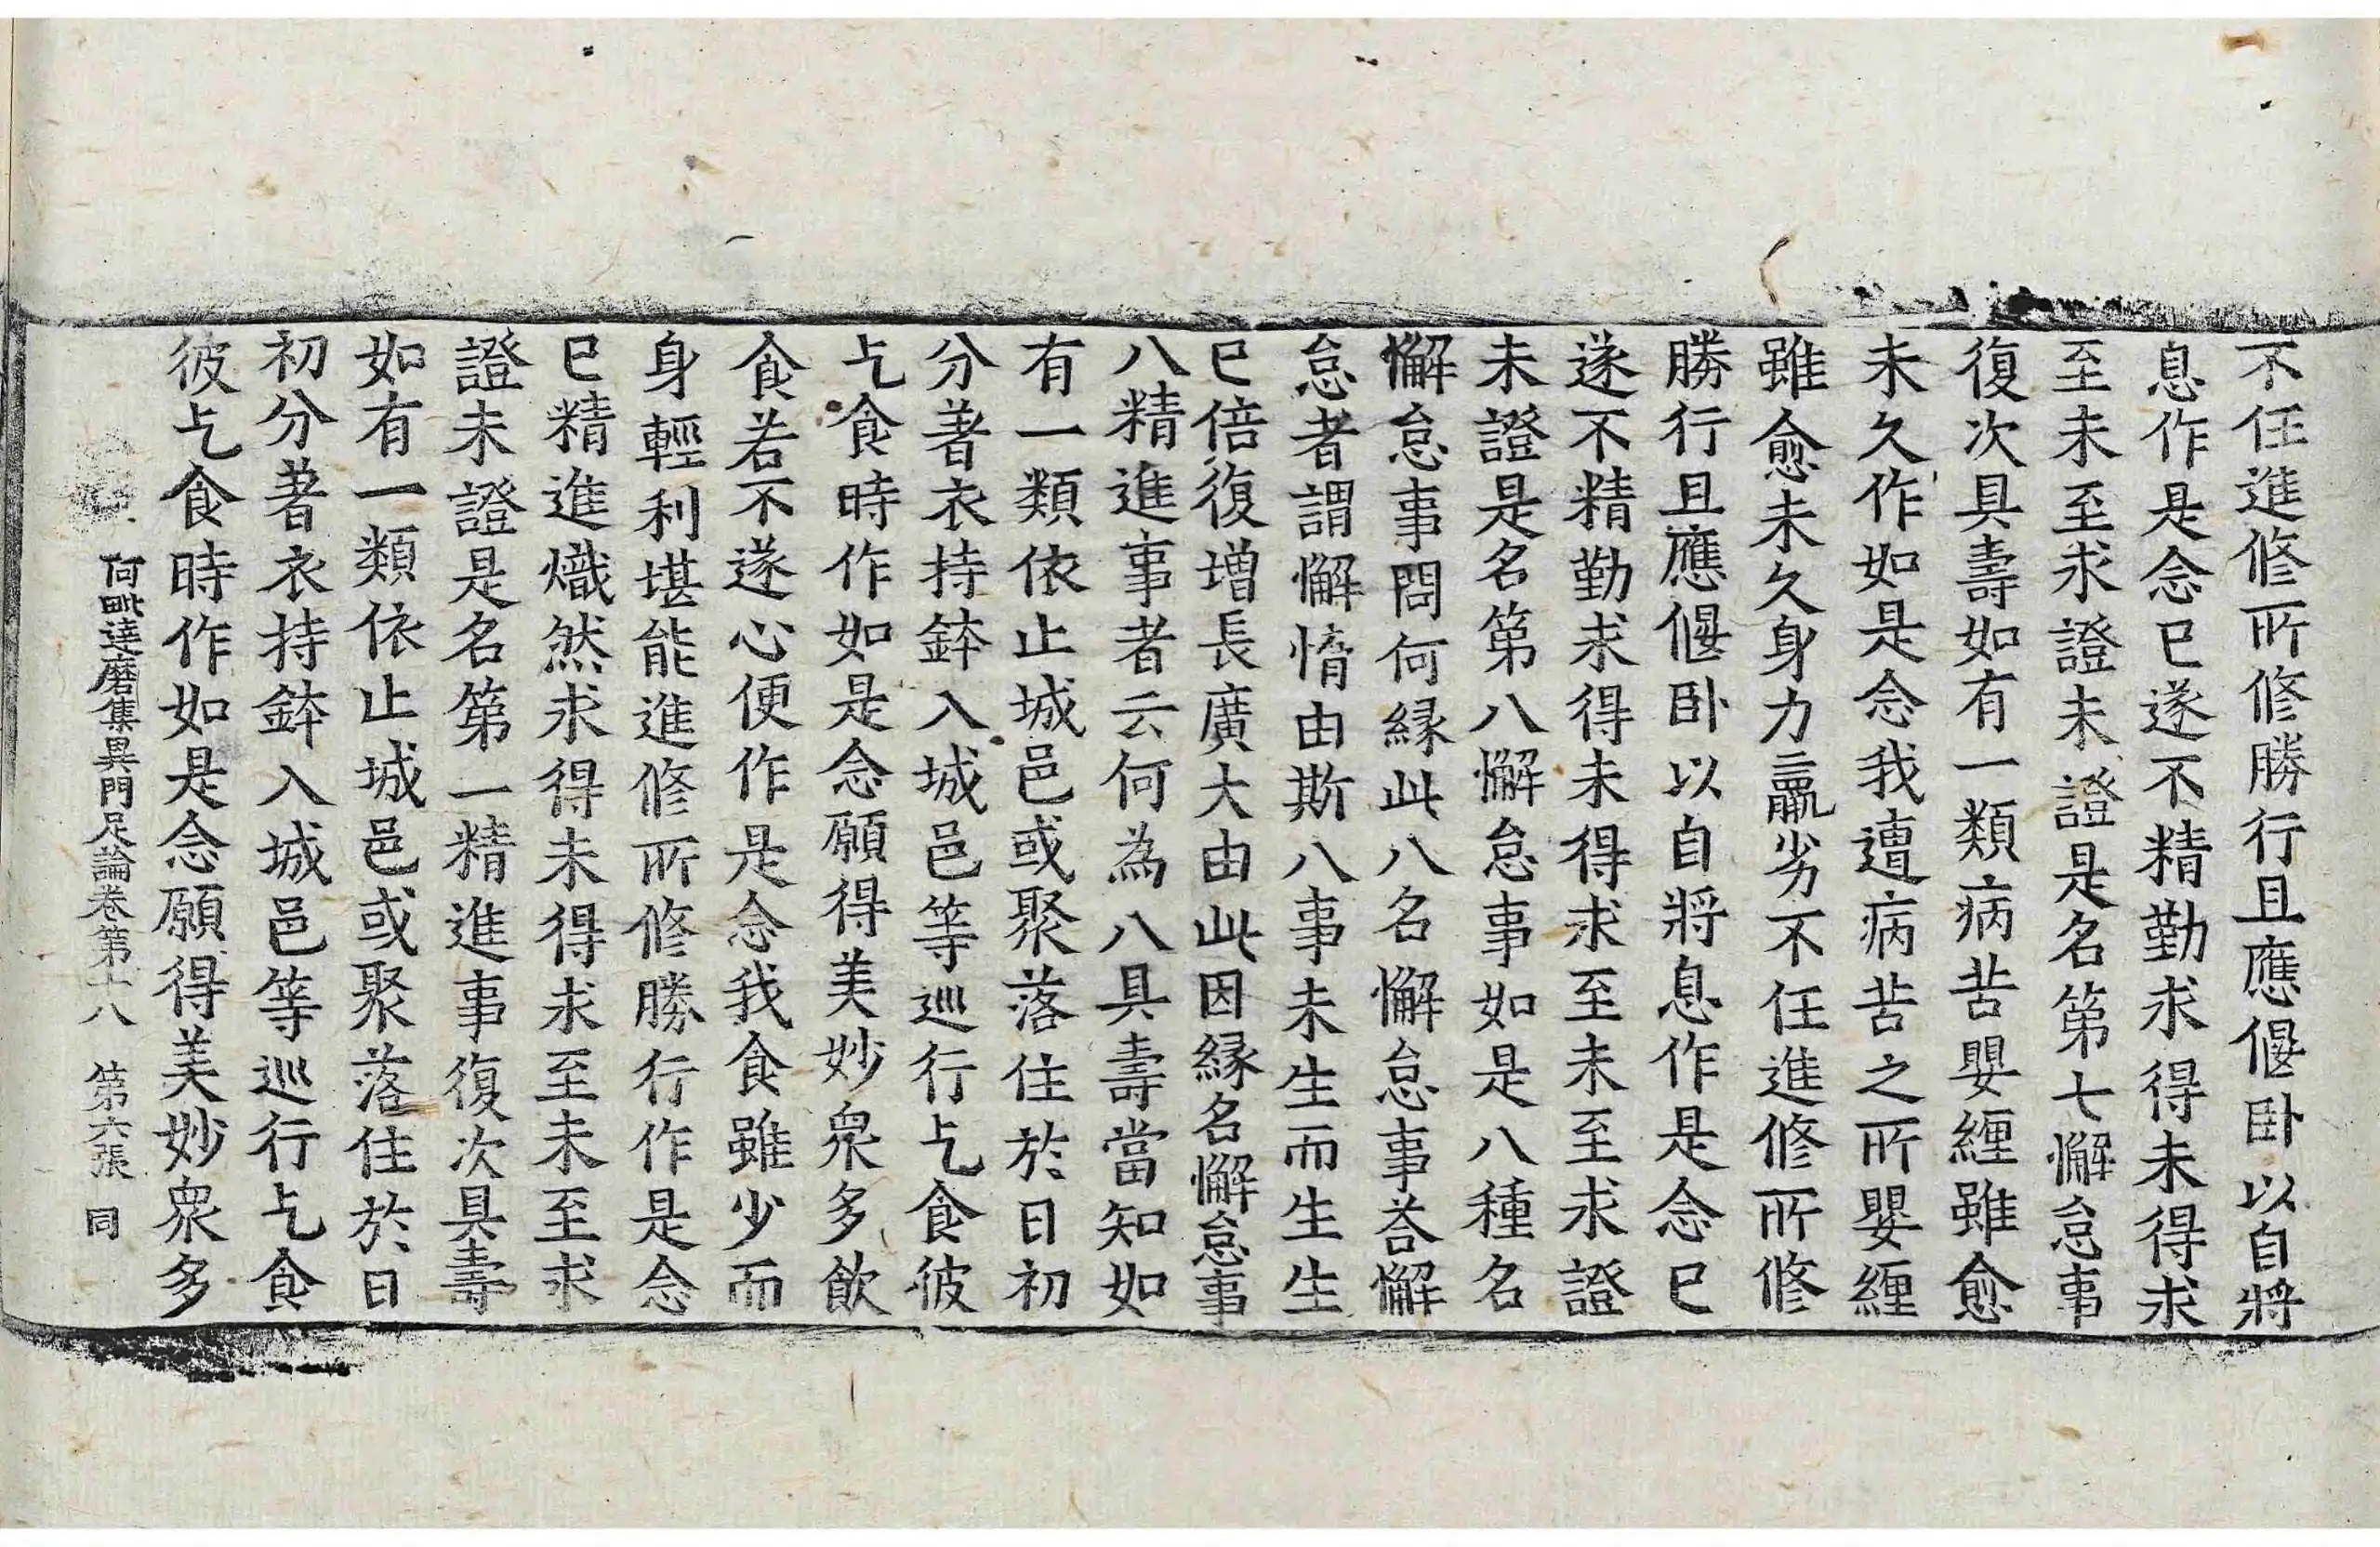 不任進修所修勝行且應偃卧以自將
息作是念已遂不精勤求得未得求
至未至求證未證是名第七懈怠事
復次具壽如有一類病苦嬰纏雖愈
未久作如是念我遭病苦之所嬰纏
雖愈未久身力羸劣不任進修所修
勝行且應偃卧以自將息作是念已
遂不精勤求得未得求至未至求證
未證是名第八懈怠事如是八種名
懈怠事問何緣此八名懈怠事荅懈
怠者謂懈惰由斯八事未生而生生
已倍復增長廣大由此因緣名懈怠事
八精進事者云何為八具壽當知如
有一類依止城邑或聚落住於日初
分著衣持鉢入城邑等巡行乞食彼
乞食時作如是念願得美妙衆多飲
食若不遂心便作是念我食雖少而
身輕利堪能進修所修勝行作是念
已精進熾然求得未得求至未至求
證未證是名第一精進事復次具壽
如有一類依止城邑或聚落住於日
初分著衣持鉢入城邑等巡行乞食
彼乞食時作如是念願得美妙衆多
阿毗達磨集異門足論卷第十八 第六張 同